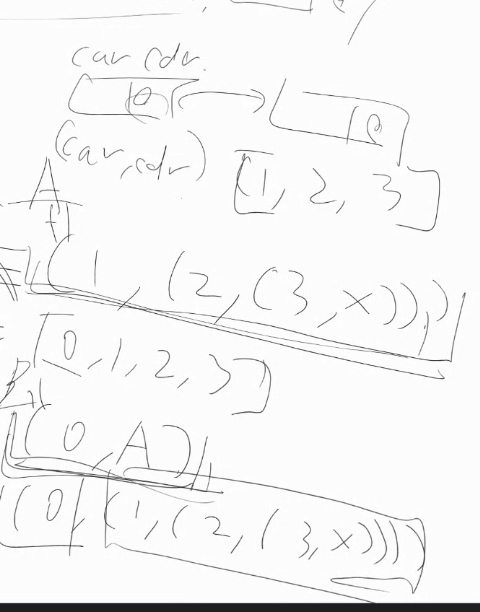 car cdr.
(car, cdr)
[1, 2, 3]
A
(1, (2, (3, x)))
[0, 1, 2, 3]
B
(0, A)
(0, (1, (2, (3, x))))